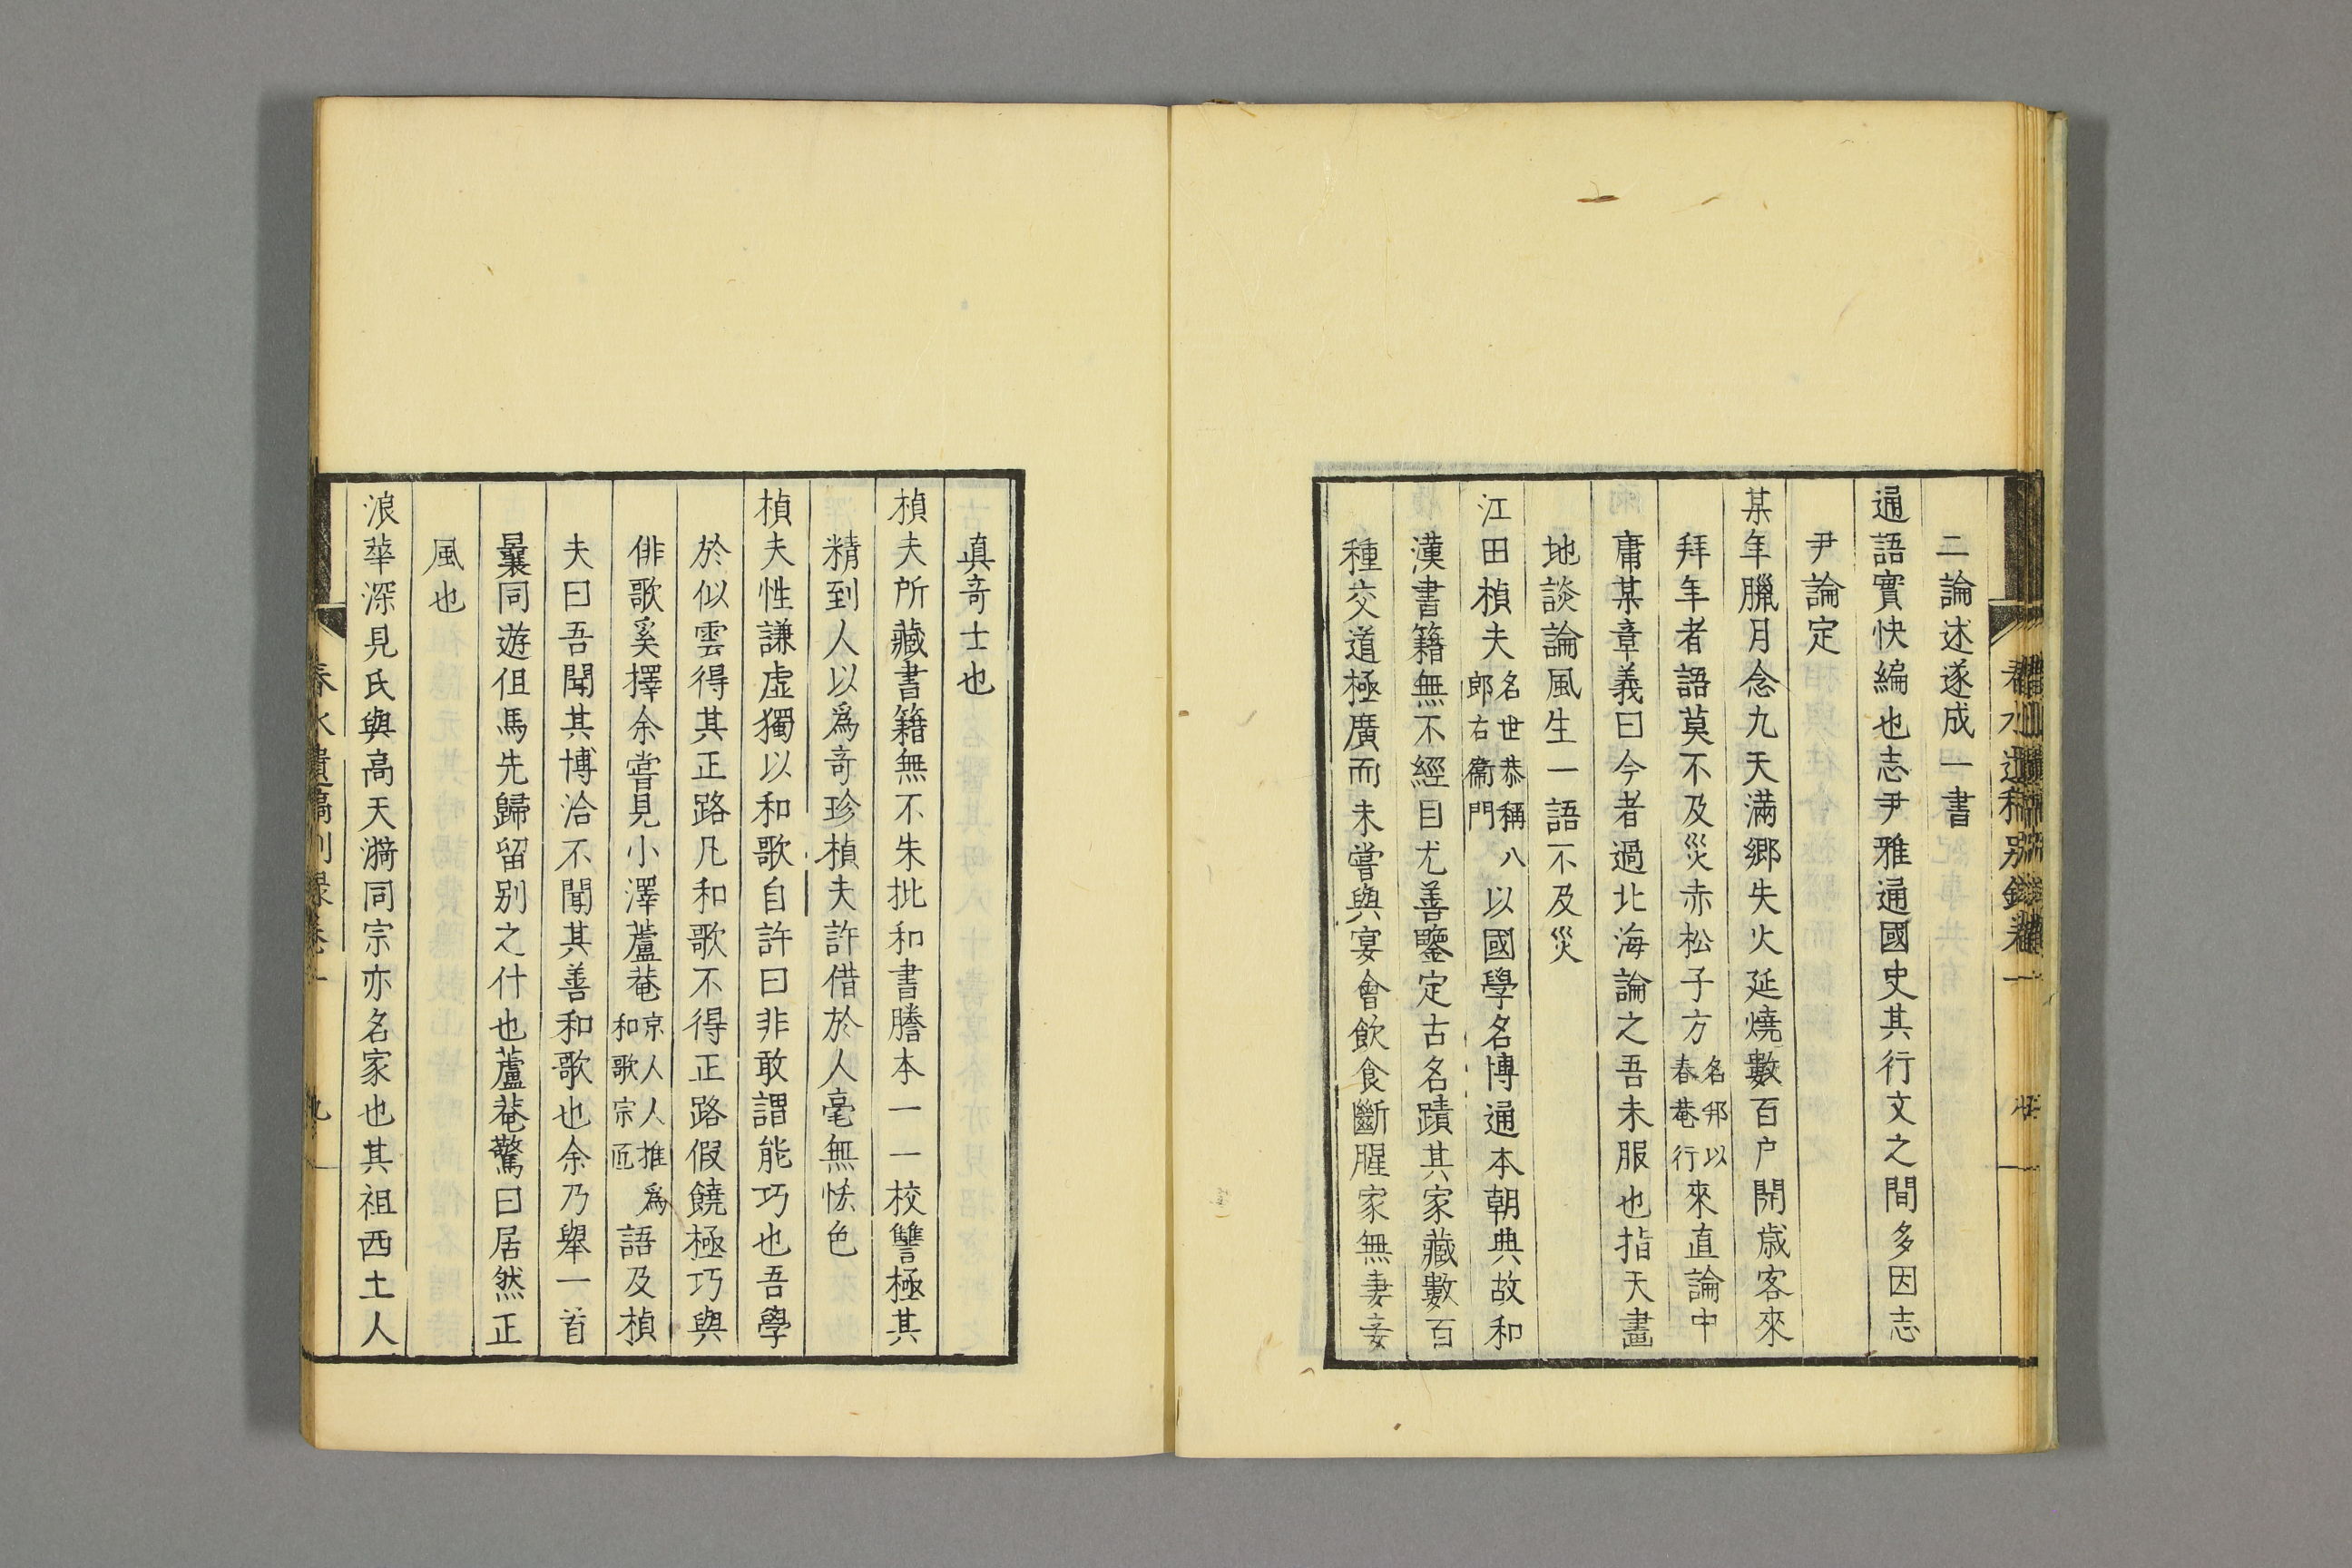 二論述遂成一書
通語實快編也志尹雅通國史其行文之間多因志
尹論定
某年臘月念九天滿鄉失火延燒數百戶開歲客來
拜年者語莫不及災赤松子方名邦以春菴行來直論中
庸某章義曰今者過北海論之吾未服也指天畫
地談論風生一語不及災
江田楨夫名世恭稱八郎右衞門以國學名博通本朝典故和
漢書籍無不經目尤善鑒定古名蹟其家藏數百
種交道極廣而未嘗與宴會飲食斷腥家無妻妾
真竒士也
楨夫所藏書籍無不朱批和書謄本一一校讐極其
精到人以爲竒珍楨夫許借於人毫無恡色
楨夫性謙虛獨以和歌自許曰非敢謂能巧也吾學
於似雲得其正路凡和歌不得正路假饒極巧與
俳歌奚擇余嘗見小澤蘆菴京人人推爲和歌宗匠語及楨
夫曰吾聞其博洽不聞其善和歌也余乃舉一首
曩同遊伹馬先歸留别之什也蘆菴驚曰居然正
風也
浪華深見氏與高天漪同宗亦名家也其祖西土人
春水遺稿别錄卷一
九